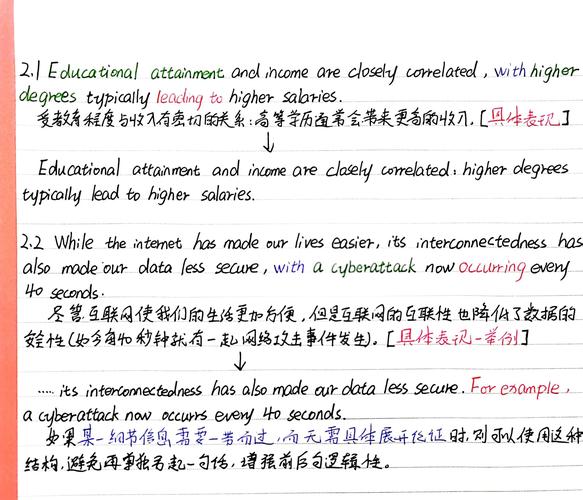 2.1 Educational attainment and income are closely correlated, with higher
degrees typically leading to higher salaries.
受教育程度与收入有密切的关系：高等学历通常会带来更高的收入.[具体表现]
Educational attainment and income are closely correlated: higher degrees
typically lead to higher salaries.
2.2 While the internet has made our lives easier, its interconnectedness has
also made our data less secure, with a cyberattack now occurring every
40 seconds.
尽管互联网使我们的生活更加方便，但是互联网的互联性也降低了数据的
安全性(如今每40秒钟就有一起网络攻击事件发生). [具体表现-举例]
..... its interconnectedness has also made our data less secure. For example,
a cyberattack now occurrs every 40 seconds.
如果某一细节信息需要一带而过，而无需具体展开论证时,则可以使用这种
结构,避免再单独另起一句话,增强前后句逻辑性.